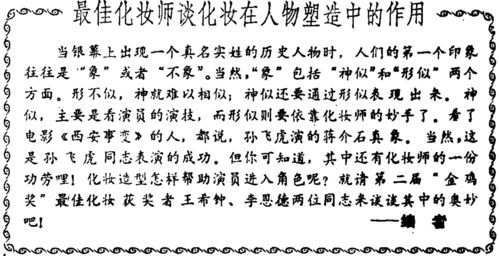 最佳化妆师谈化妆在人物塑造中的作用
当银幕上出现一个真名实姓的历史人物时，人们的第一个印象
往往是“象”或者“不象”。当然，“象”包括“神似”和“形似”两个
方面。形不似，神就难以相似；神似还要通过形似表现出来。神
似，主要是看演员的演技，而形似则要依靠化妆师的妙手了。看了
电影《西安事变》的人，都说，孙飞虎演的蒋介石真象。当然，这
是孙飞虎同志表演的成功。但你可知道，其中还有化妆师的一份
功劳哩！化妆造型怎样帮助演员进入角色呢？就请第二届“金鸡
奖”最佳化妆获奖者王希钟、李恩德两位同志来谈谈其中的奥妙
吧！
——编者